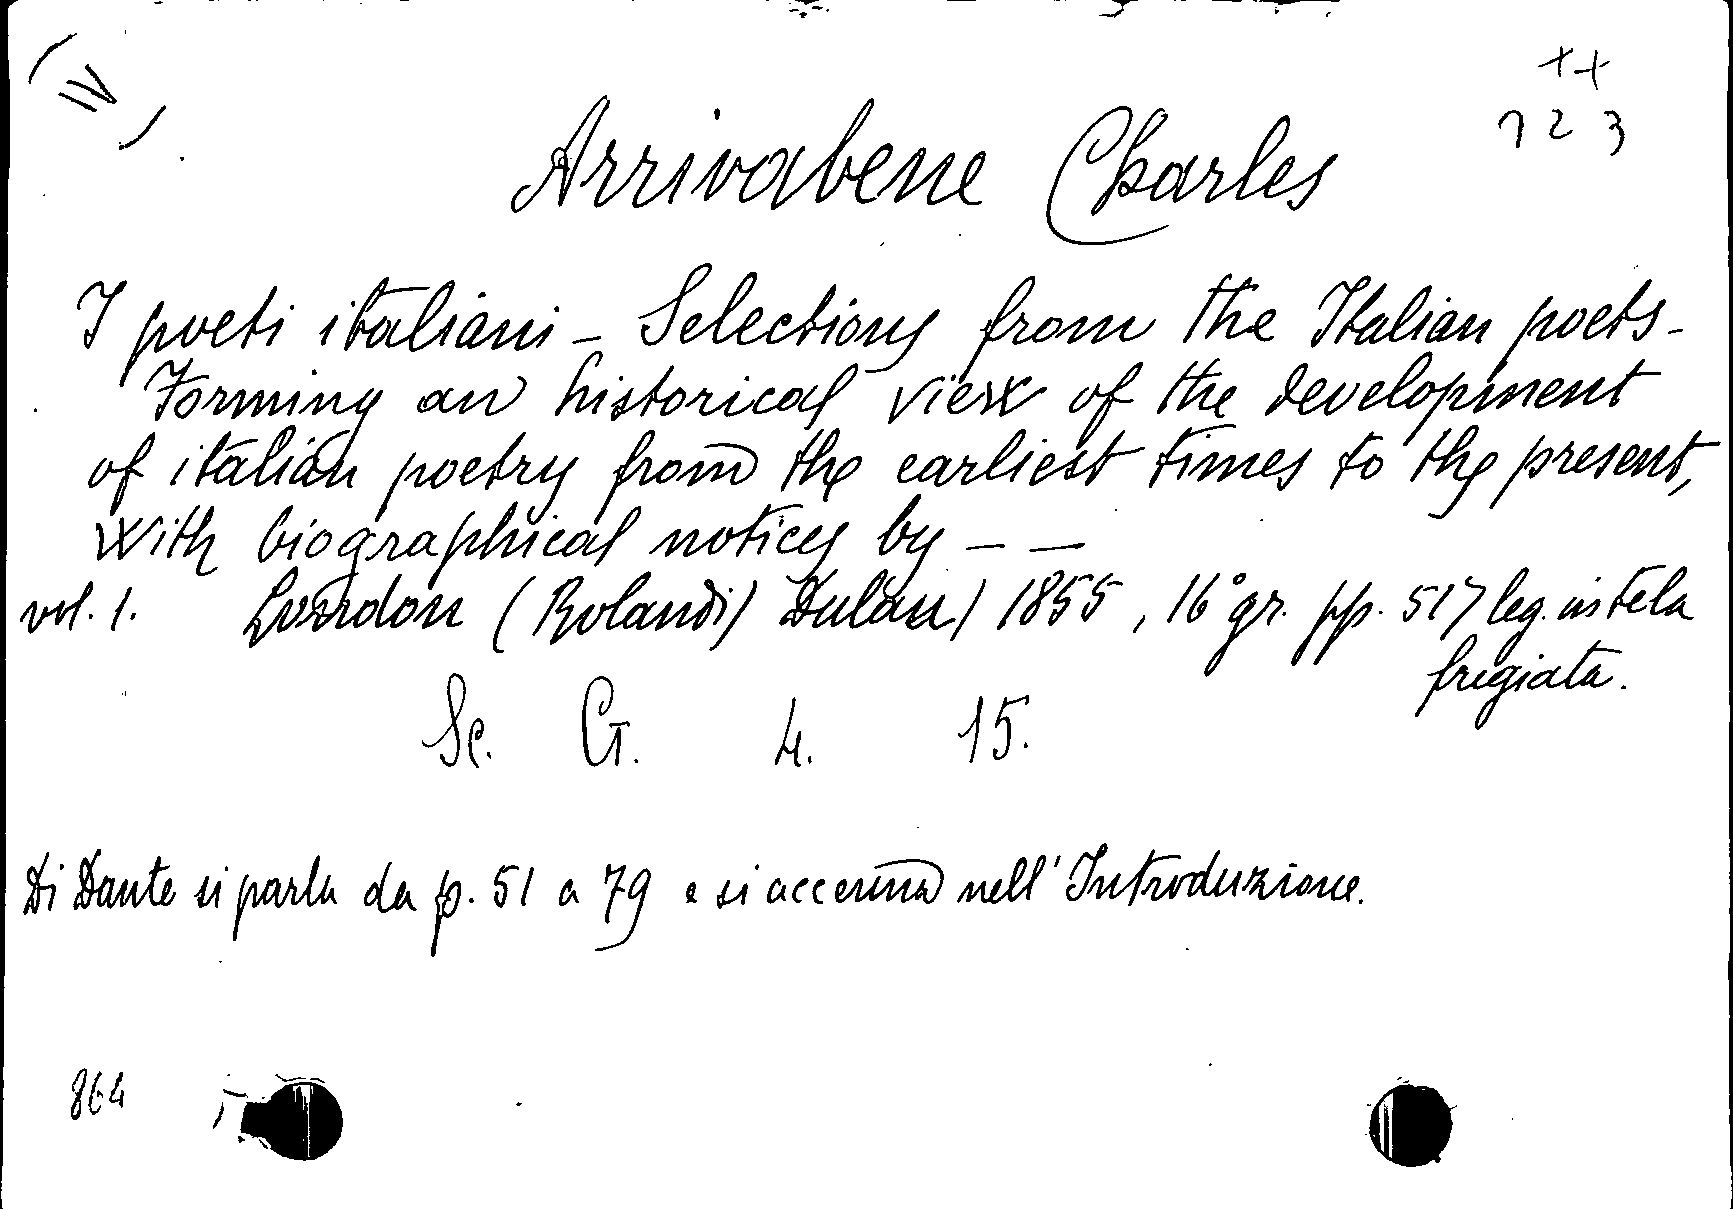 IV
++
723
Arrivabene Charles
I poeti italiani – Selections from the Italian poets –
Forming an historical view of the development
of italian poetry from the earliest times to the present,
with biographical notices by – –
vol. 1. London (Rolandi) Dulau) 1855, 16° gr. pp. 517 leg. in tela
fregiata.
Sc. G. 4. 15.
Di Dante si parla da p. 51 a 79 e si accenna nell'Introduzione.
864